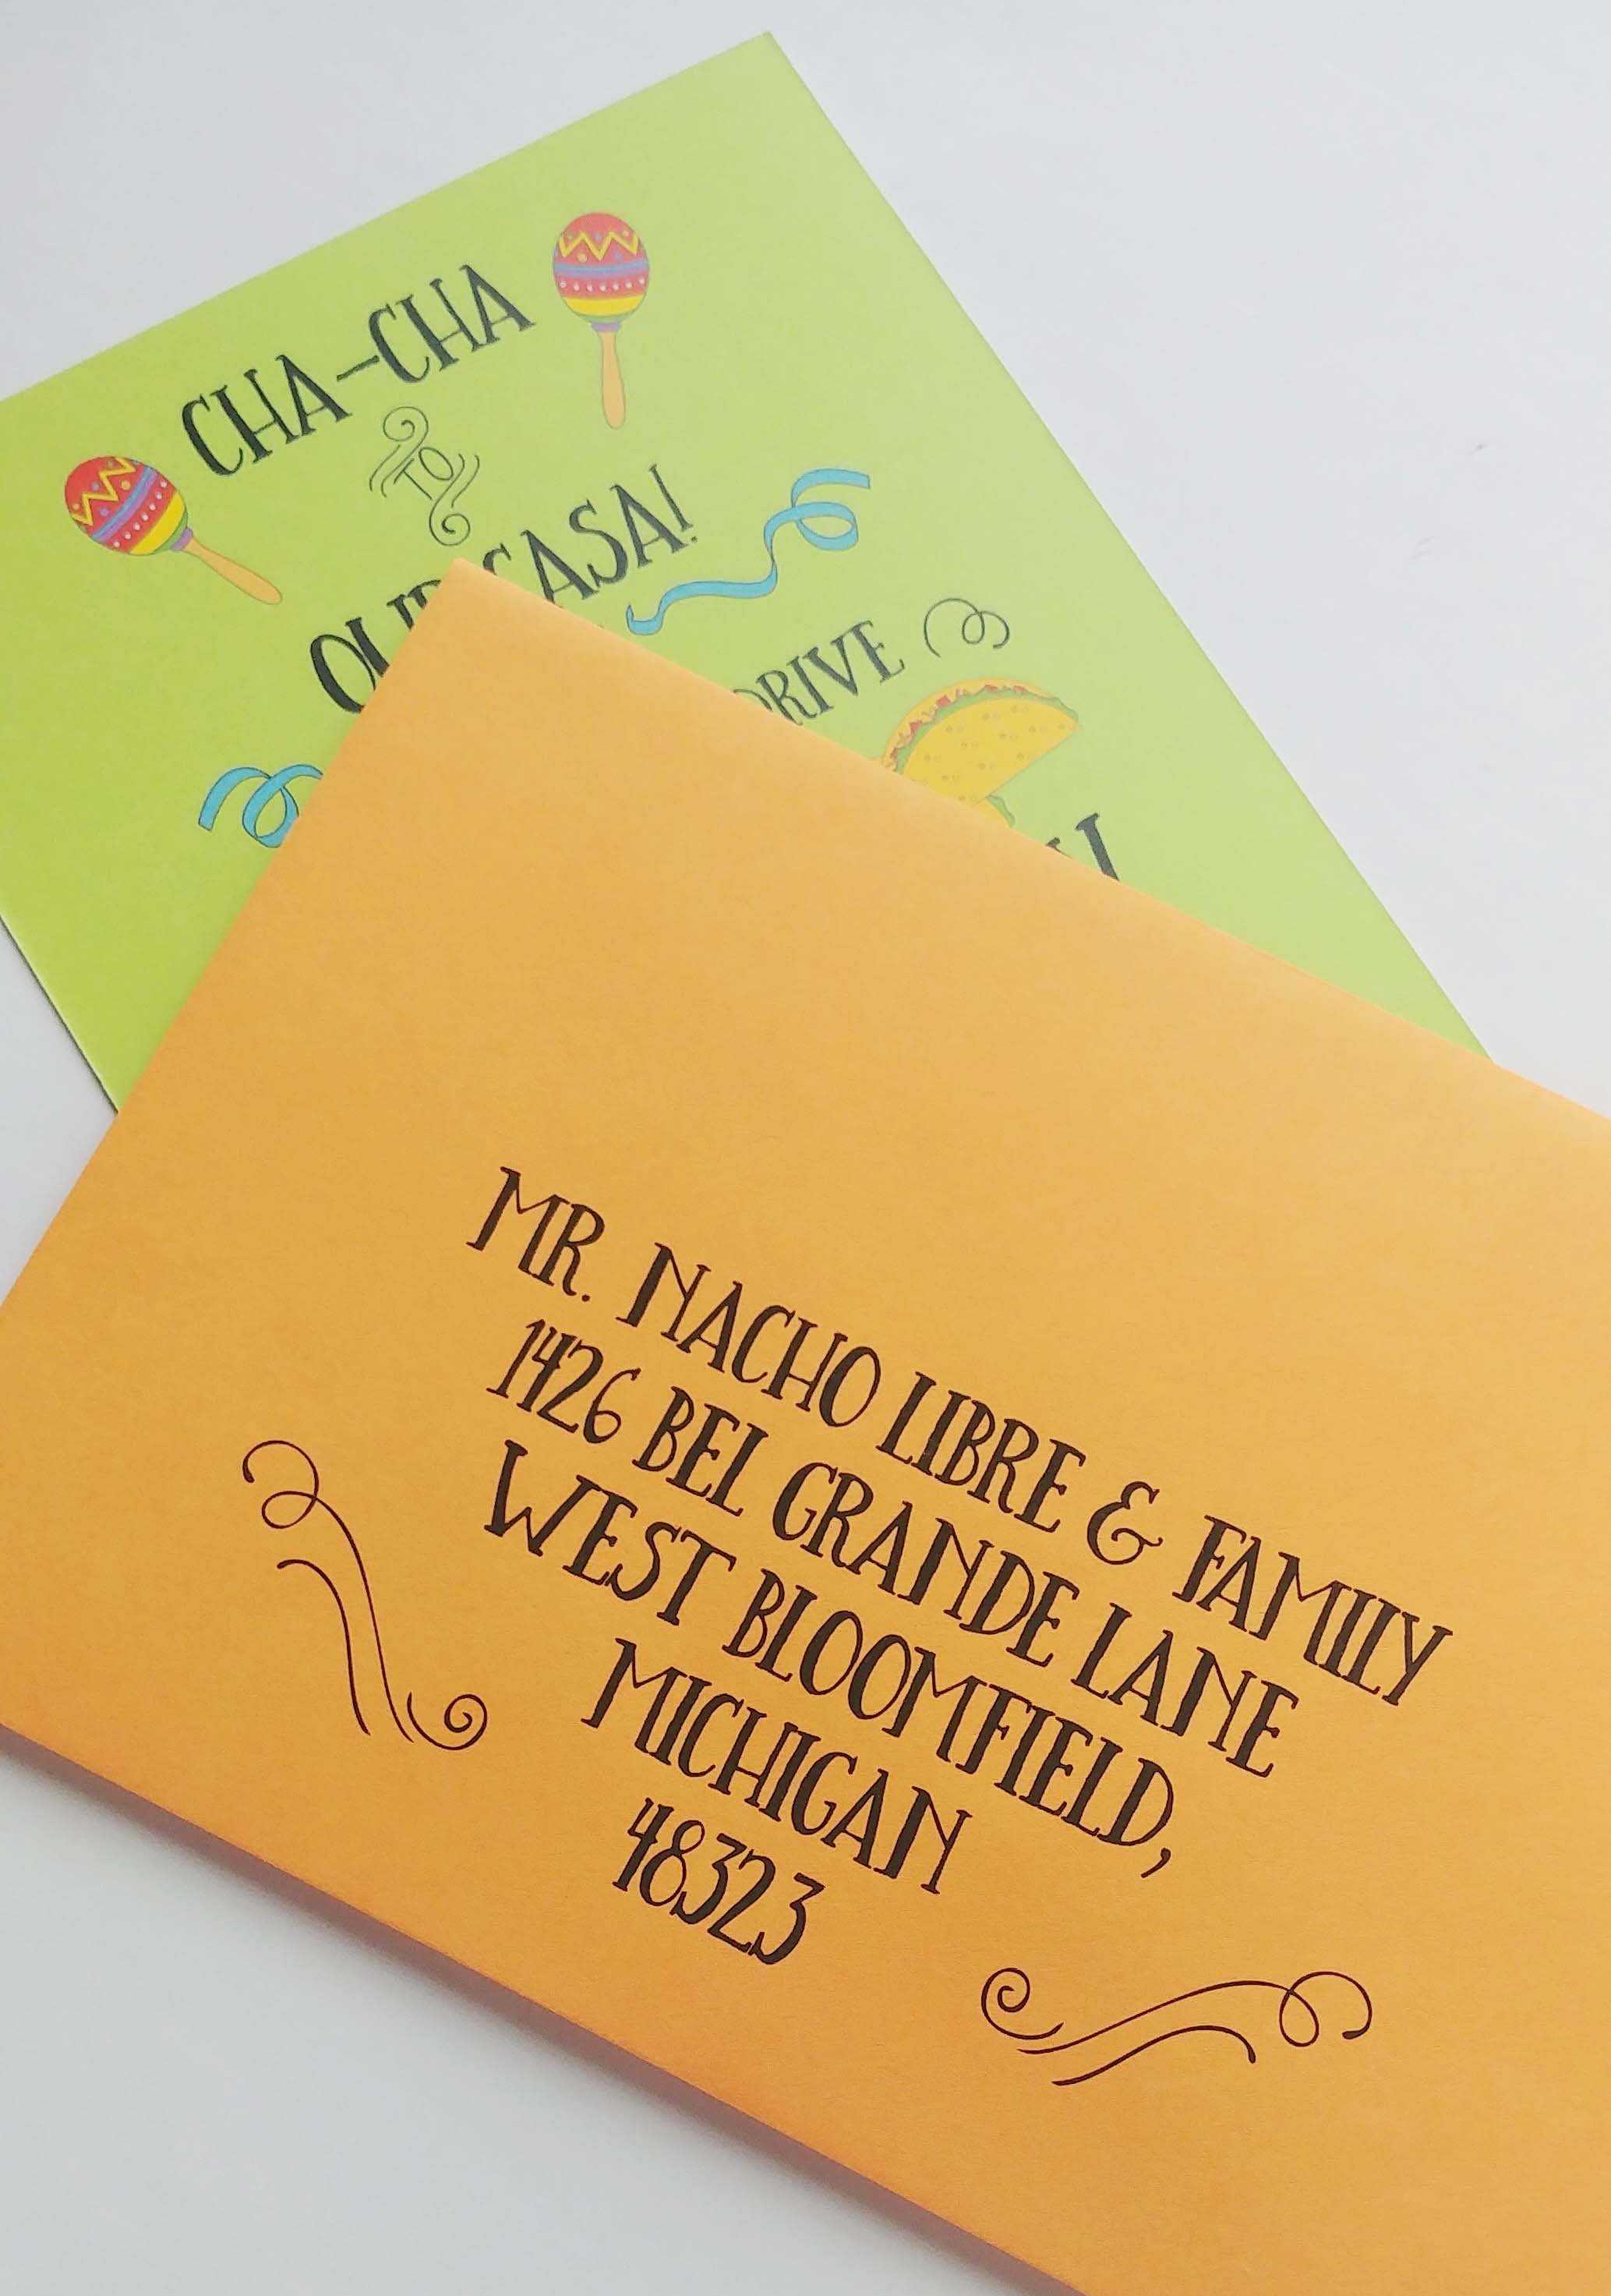 CHA-CHA
TO
OUR CASA!
DRIVE
MR. NACHO LIBRE & FAMILY
1426 BEL GRANDE LANE
WEST BLOOMFIELD,
MICHIGAN
48323